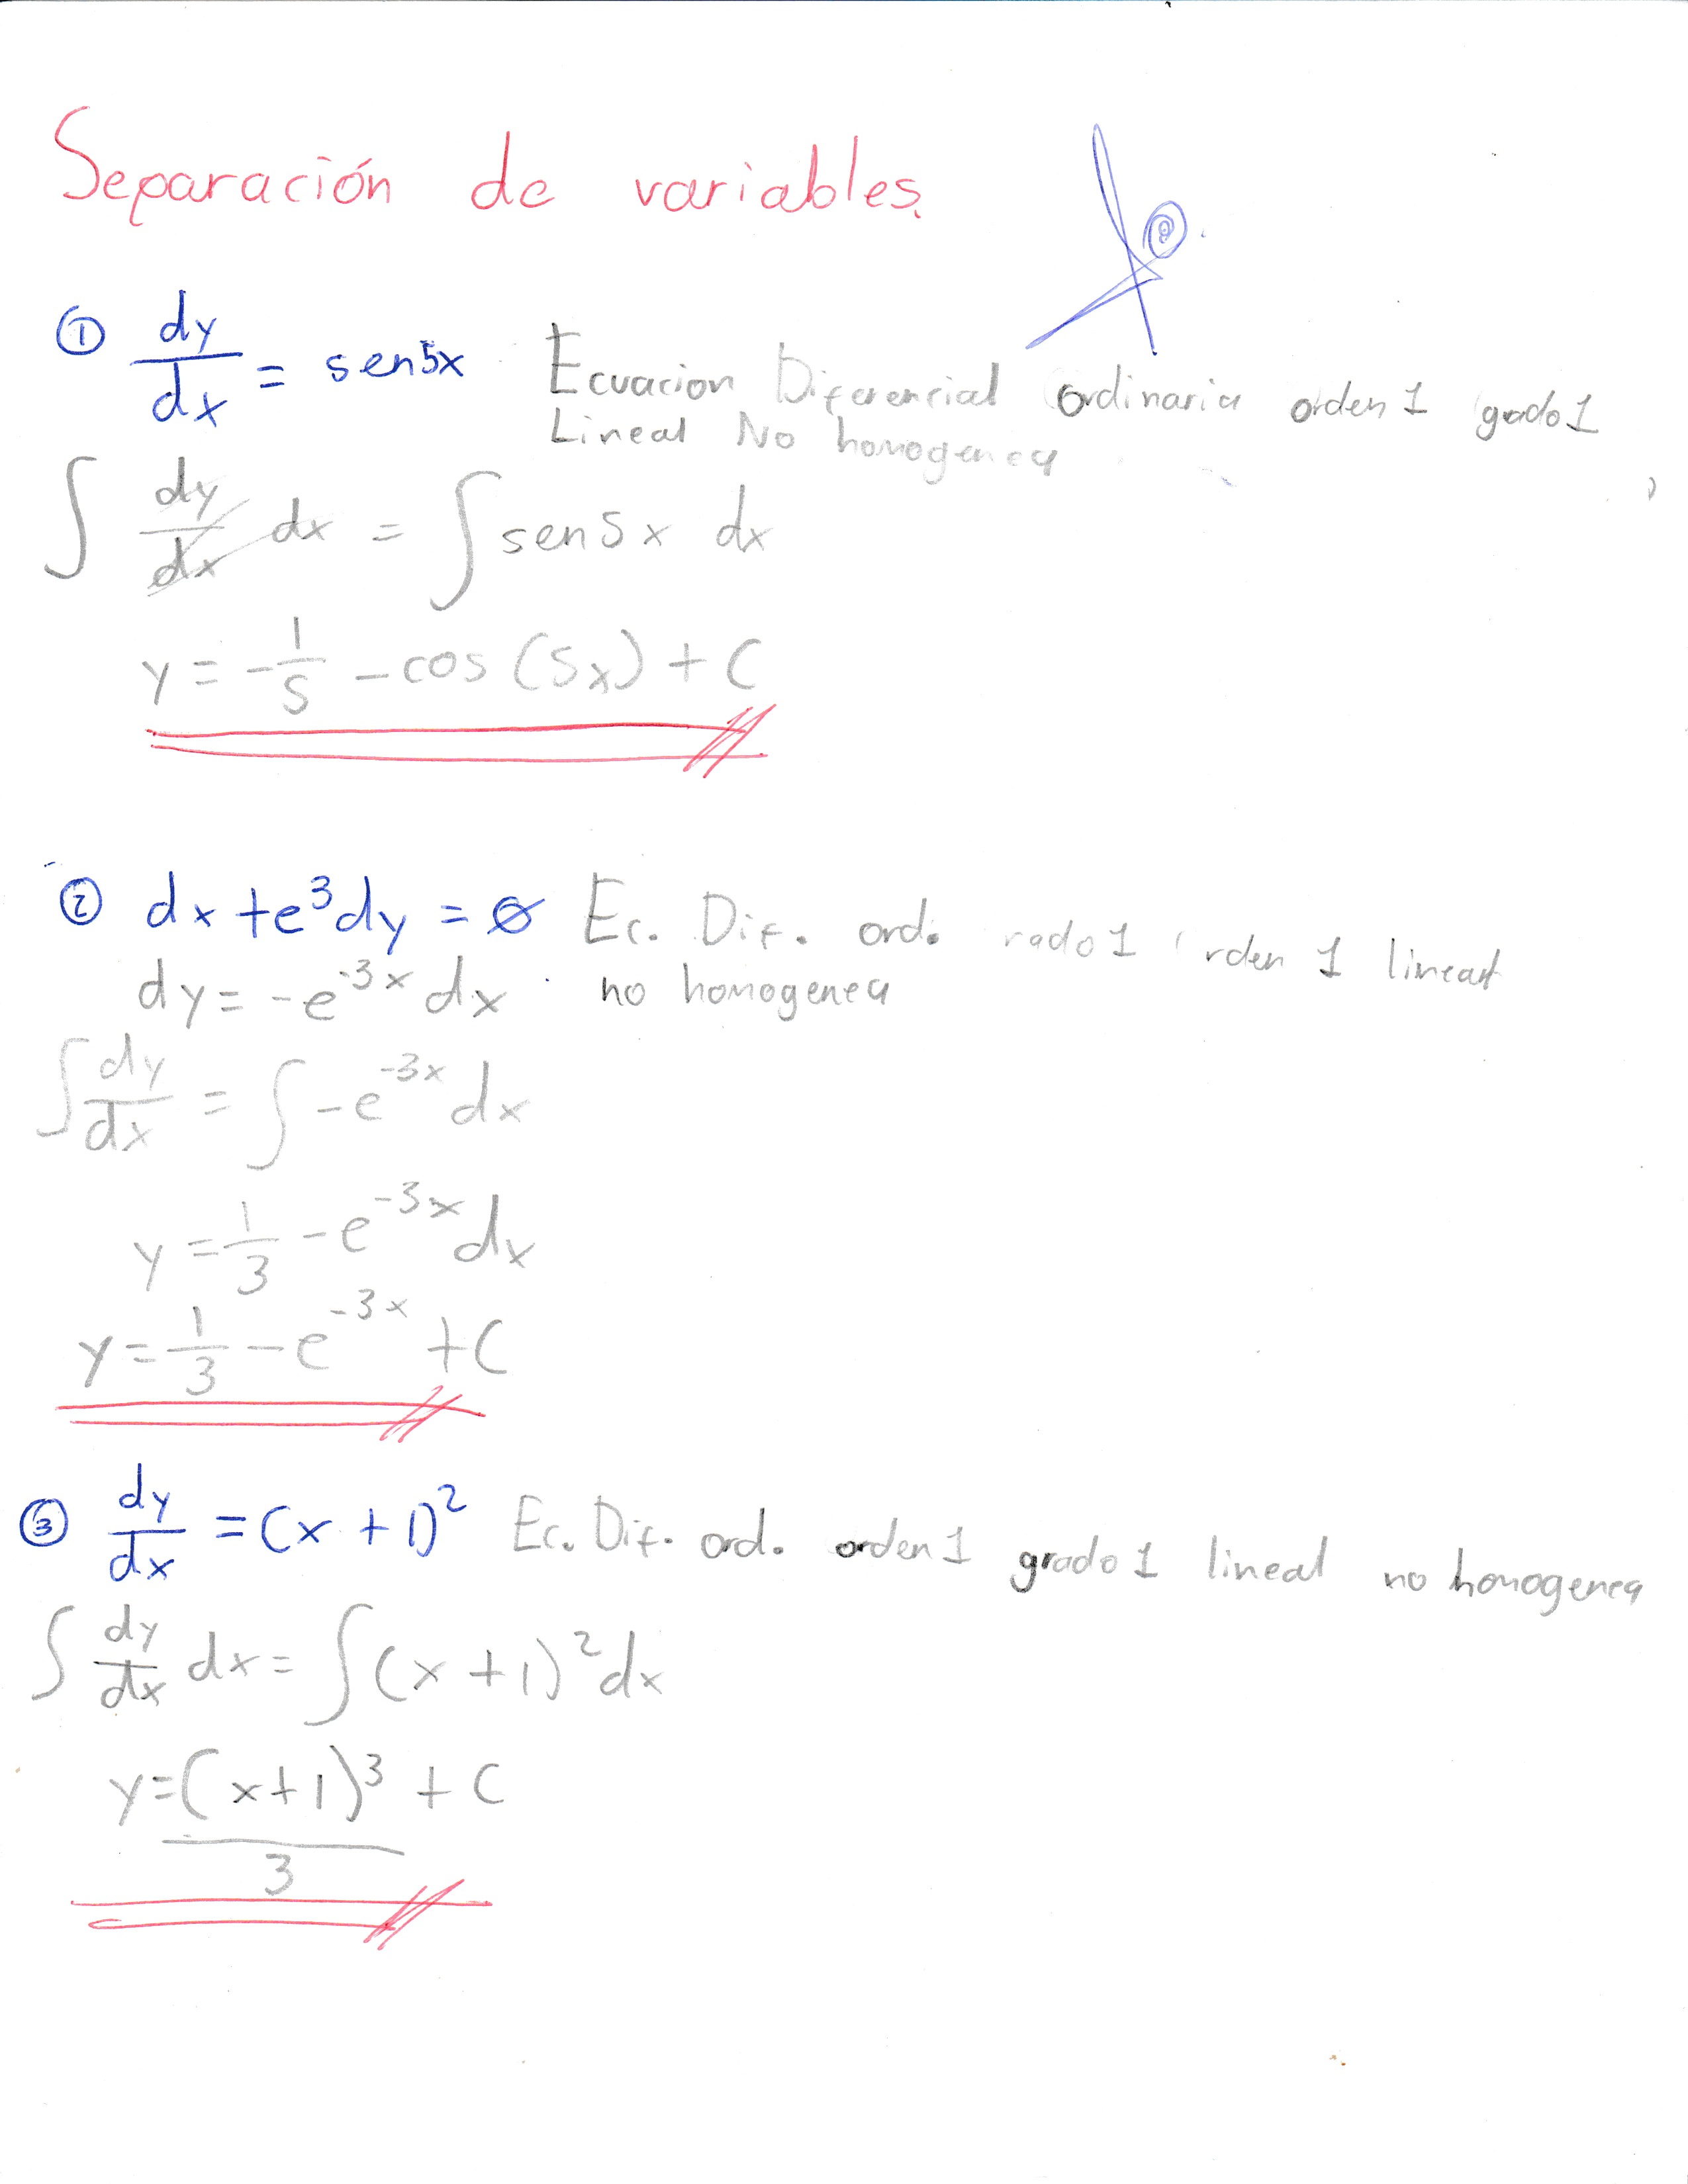 Separación de variables.
① dy/dx = sen5x Ecuacion Diferencial Ordinaria orden 1 grado 1
Lineal No homogenea
∫ dy/dx dx = ∫ sen5x dx
y = -1/5 - cos (5x) + C
② dx + e³dy = 0 Ec. Dif. ord. rado 1 rden 1 lineal
dy = -e^-3x dx no homogenea
∫ dy/dx = ∫ -e^-3x dx
y = 1/3 - e^-3x dx
y = 1/3 - e^-3x + C
③ dy/dx = (x + 1)² Ec. Dif. ord. orden 1 grado 1 lineal no homogenea
∫ dy/dx dx = ∫ (x + 1)² dx
y = (x+1)³/3 + C